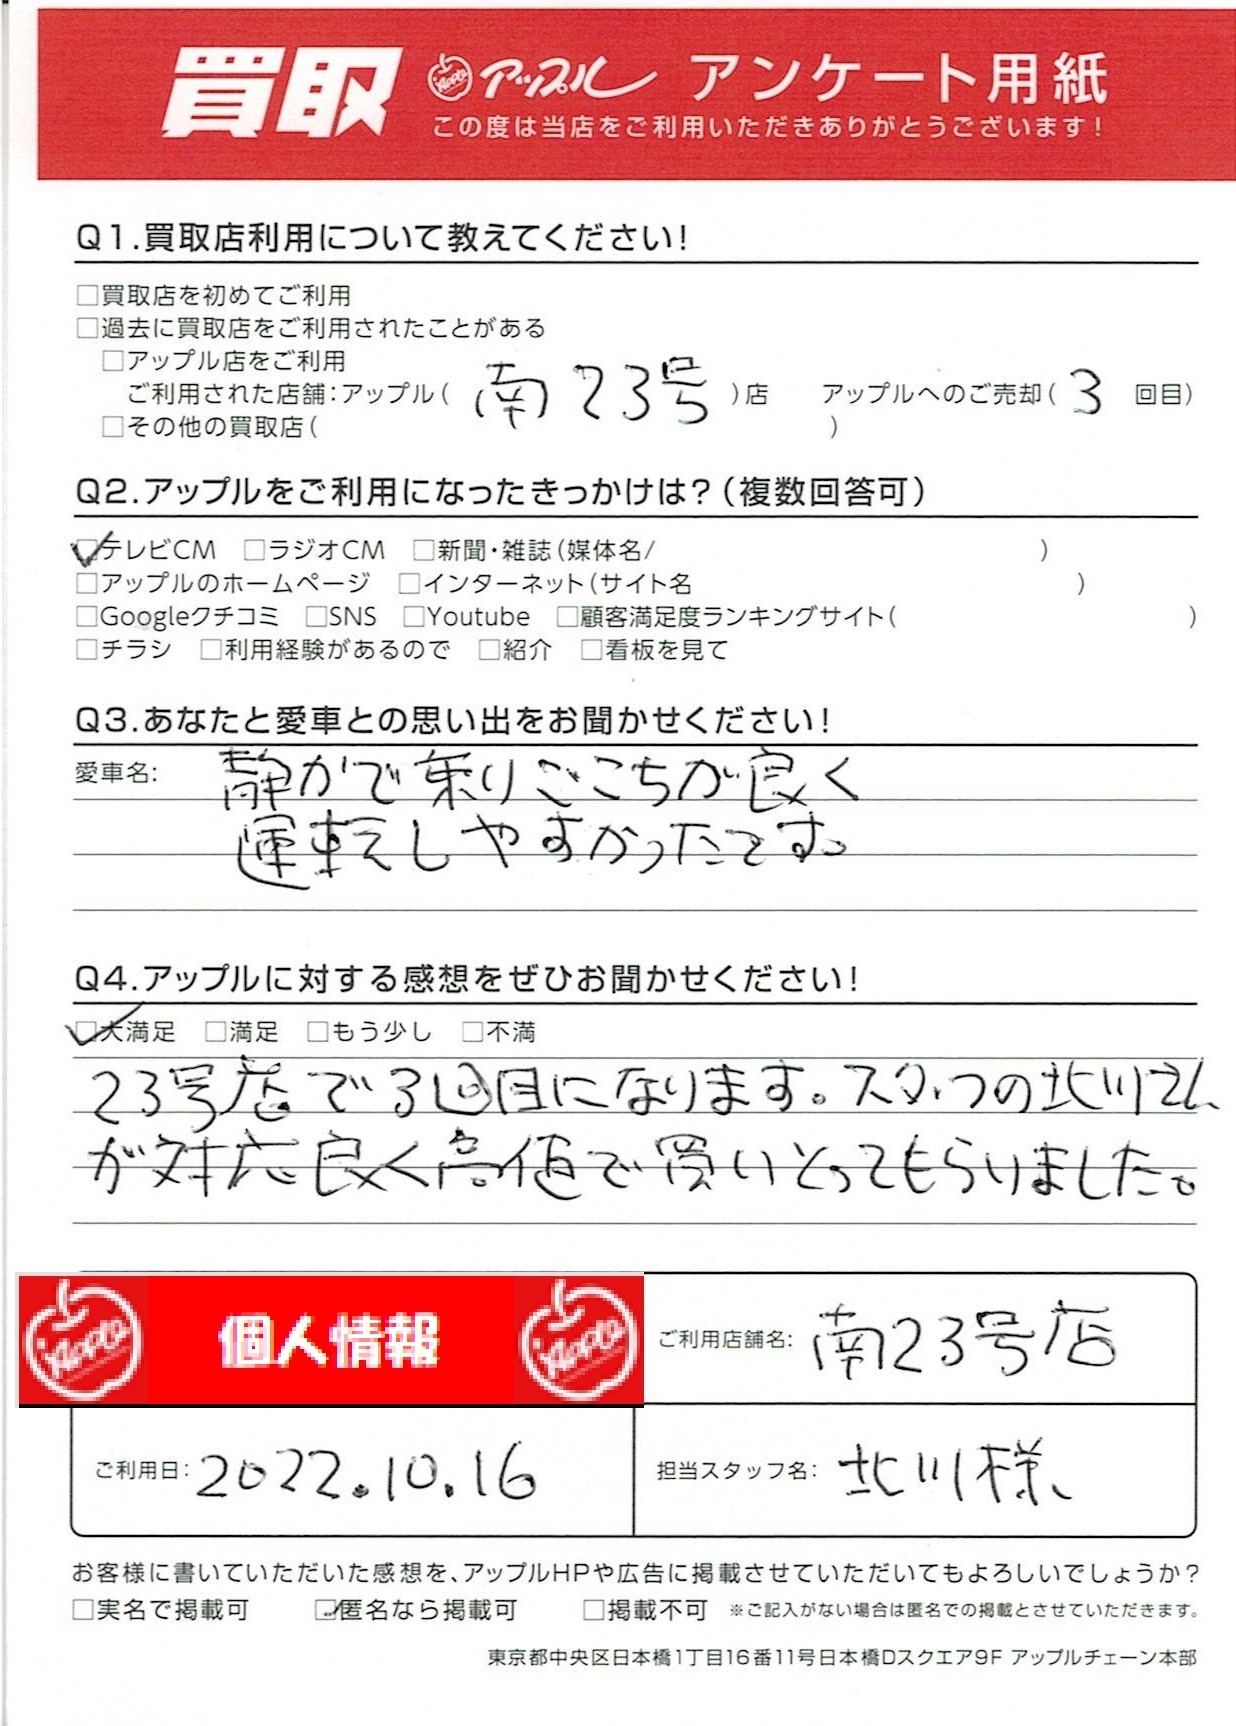 買取 Apple アップル アンケート用紙
この度は当店をご利用いただきありがとうございます！
Q1.買取店利用について教えてください！
□買取店を初めてご利用
□過去に買取店をご利用されたことがある
□アップル店をご利用
ご利用された店舗：アップル（ 南23号 ）店 アップルへのご売却（ 3 回目）
□その他の買取店（ ）
Q2.アップルをご利用になったきっかけは？（複数回答可）
☑テレビCM □ラジオCM □新聞・雑誌（媒体名/ ）
□アップルのホームページ □インターネット（サイト名 ）
□Googleクチコミ □SNS □Youtube □顧客満足度ランキングサイト（ ）
□チラシ □利用経験があるので □紹介 □看板を見て
Q3.あなたと愛車との思い出をお聞かせください！
愛車名： 静かで乗りごこちが良く
運転しやすかったです。
Q4.アップルに対する感想をぜひお聞かせください！
☑大満足 □満足 □もう少し □不満
23号店で3回目になります。スタッフの北川さん
が対応良く高値で買いとってもらりました。
Apple 個人情報 Apple
ご利用店舗名： 南23号店
ご利用日： 2022.10.16 担当スタッフ名： 北川様、
お客様に書いていただいた感想を、アップルHPや広告に掲載させていただいてもよろしいでしょうか？
□実名で掲載可 ☑匿名なら掲載可 □掲載不可 ※ご記入がない場合は匿名での掲載とさせていただきます。
東京都中央区日本橋1丁目16番11号日本橋Dスクエア9F アップルチェーン本部